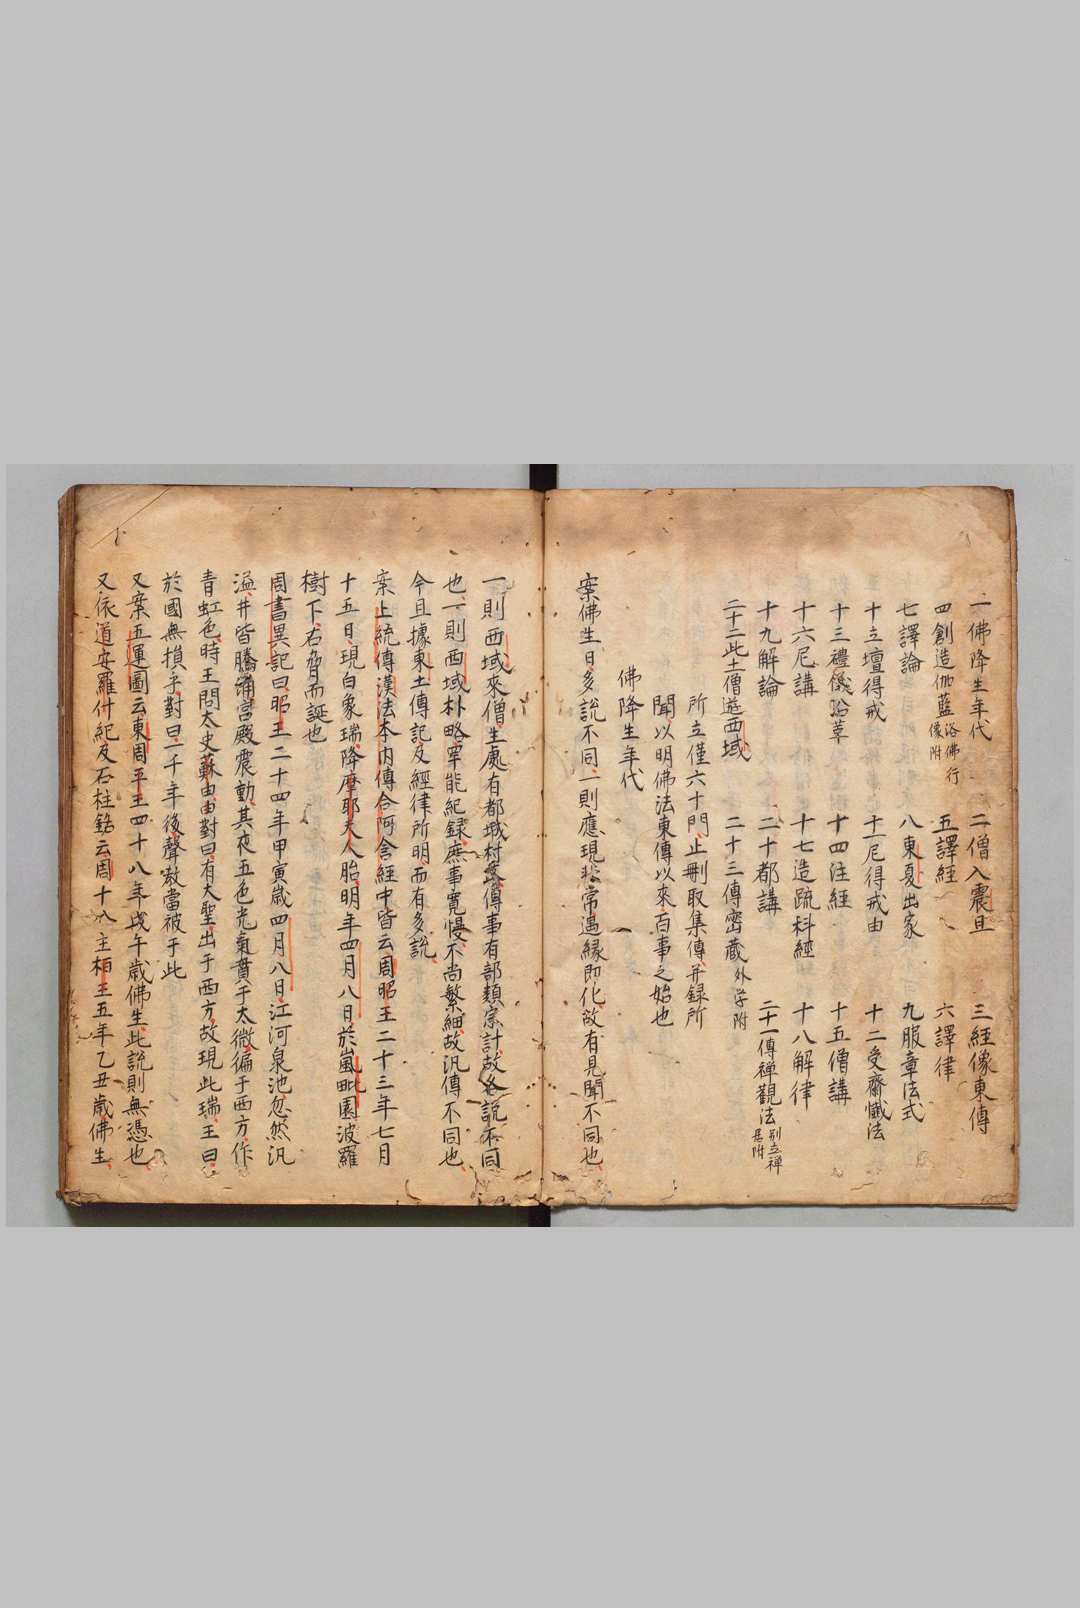 一佛降生年代　二僧入震旦　三經像東傳
四創造伽藍浴佛行像附　五譯經　六譯律
七譯論　八東夏出家　九服章法式
十立壇得戒　十一尼得戒由　十二受齋懴法
十三禮儀沿革　十四注經　十五僧講
十六尼講　十七造疏科經　十八解律
十九解論　二十都講　二十一傳禅觀法別立禅居附
二十二此土僧遊西域　二十三傳密藏外学附
所立僅六十門、止刪取集傳、并録所
聞、以明佛法東傳以來、百事之始也
佛降生年代
案佛生日、多説不同、一則應現非常、遇縁即化、故有見聞不同也、
一則西域來僧、生處有都城村落、傳事有部類宗計、故各説不同
也、一則西域朴略、罕能紀録、庶事寛慢、不尚繁細、故汎傳不同也、
今且據東土傳記、及經律所明、而有多説、
案上統傳漢法本内傳合阿含經中皆云、周昭王二十三年七月
十五日、現白象瑞、降摩耶夫人胎、明年四月八日、於嵐毗園波羅
樹下、右脅而誕也
周書異記曰、昭王二十四年甲寅歳四月八日、江河泉池、忽然汎
溢、井皆騰涌、宮殿震動、其夜五色光氣貫于太微、徧于西方、作
青虹色、時王問太史蘇由、由對曰、有大聖、出于西方、故現此瑞、王曰、
於國無損乎、對曰、一千年後聲教當被于此
又案五運圖云、東周平王四十八年戊午歳佛生、此説則無憑也、
又依道安羅什紀及石柱銘云、周十八主桓王五年乙丑歳、佛生、